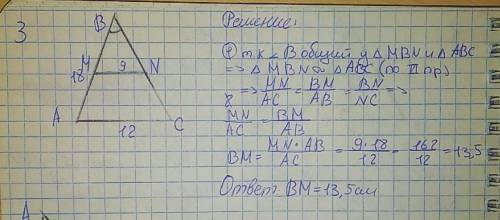 3
B
M
18
9
N
A
12
C
Решение:
① т.к ∠ B общий у △ MBN и △ ABC
=> △ MBN ∾ △ ABC (по II пр)
=> MN/AC = BM/AB = BN/NC =>
MN/AC = BM/AB
BM = MN·AB/AC = 9·18/12 = 162/12 = 13,5
Ответ: BM = 13,5см
A